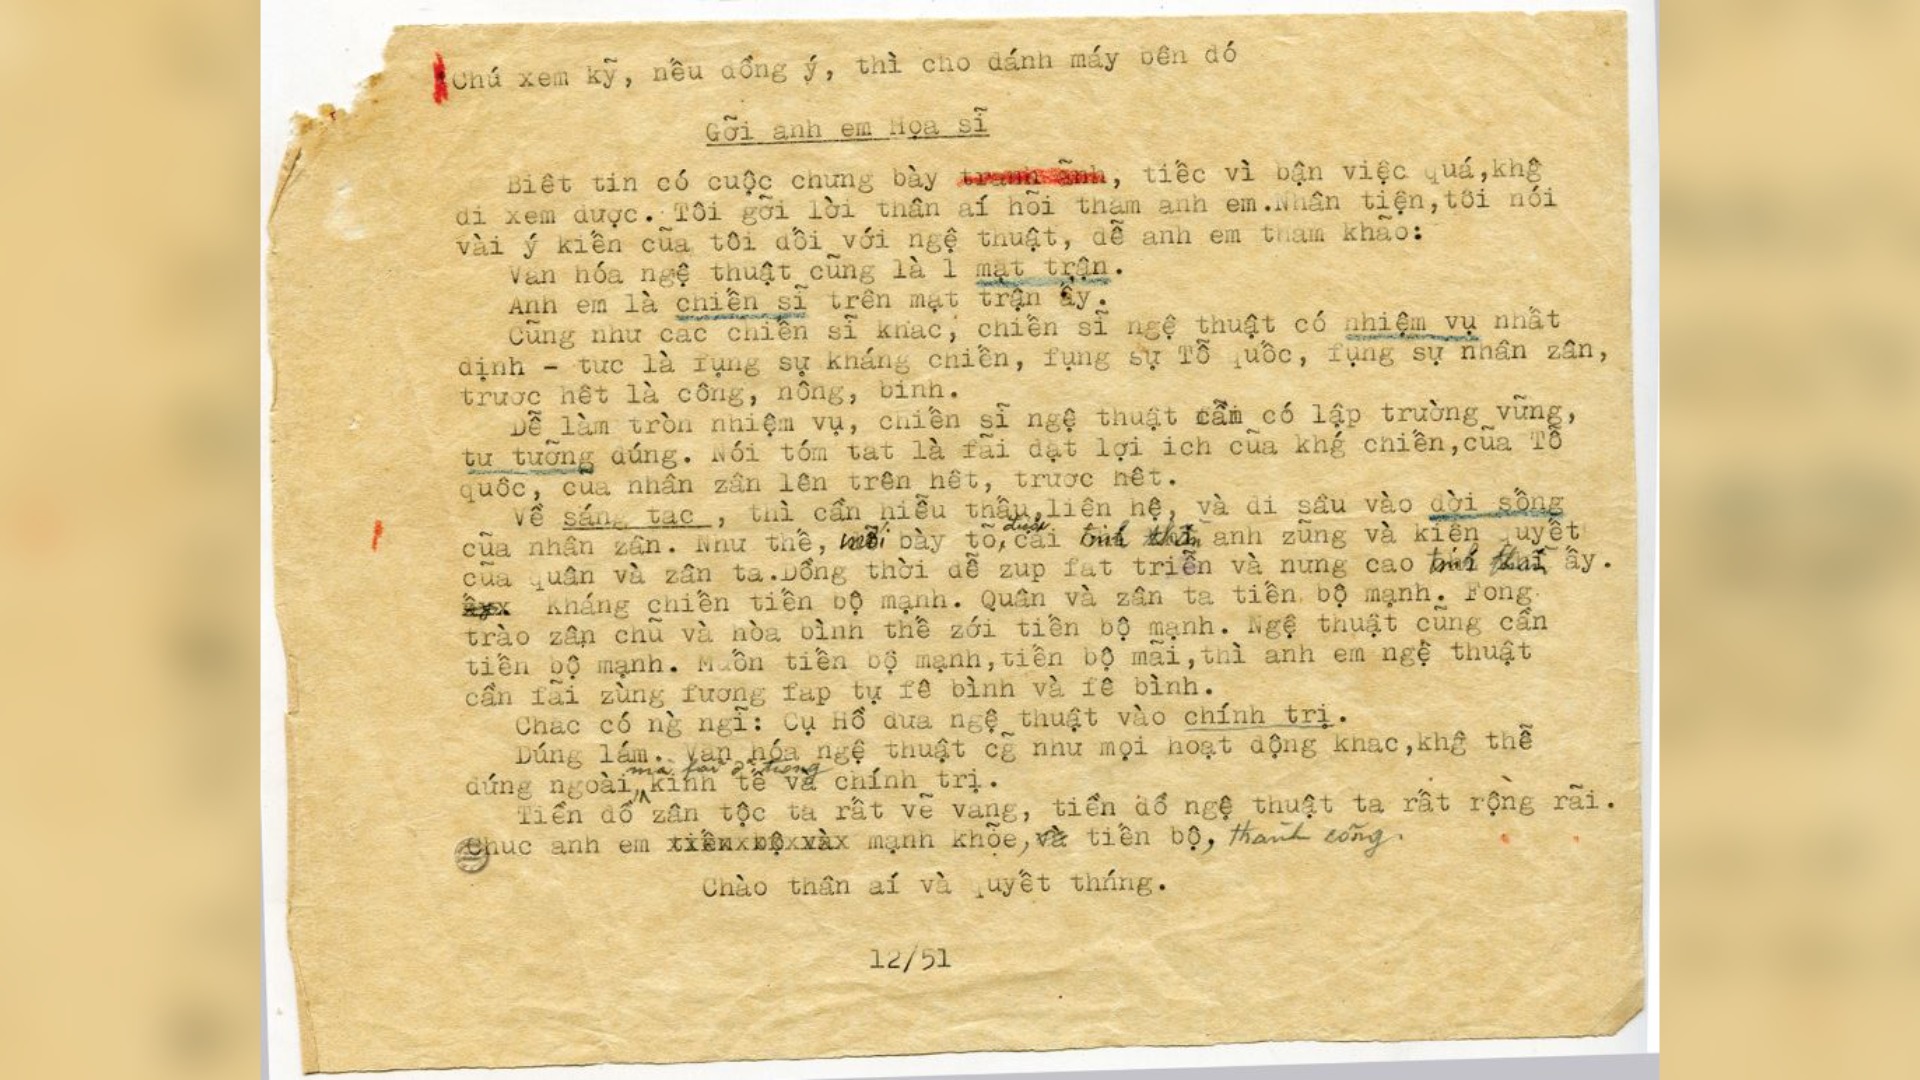 Chú xem kỹ, nều dồng ý, thì cho dánh máy bên dó
Gỡi anh em Họa sĩ
Biết tin có cuộc chưng bày tranh ảnh, tiếc vì bận việc quá,khg̀
di xem dược. Tôi gỡi lời thân aí hõi tham anh em.Nhân tiện,tôi nói
vài ý kiến cũa tôi dối với ngệ thuật, dễ anh em tham khão:
Van hóa ngệ thuật cũng là 1 mạt trận.
Anh em là chiến sĩ trên mạt trận ấy.
Cũng như các chiến sĩ khac, chiến sĩ ngệ thuật có nhiệm vụ nhất
dịnh - tưc là fụng sự kháng chiến, fụng sự Tỗ quốc, fụng sự nhân zân,
trươc hết là công, nông, binh.
Dễ làm tròn nhiệm vụ, chiến sĩ ngệ thuật cần có lập trường vững,
tư tưỡng dúng. Nói tóm tat là fãi dạt lợi ich cũa khǵ chiến,cũa Tỗ
quốc, cũa nhân zân lên trên hết, trươc hết.
Về sáng tac , thì cần hiễu thấu,liên hệ, và di sâu vào dời sống
cũa nhân zân. Như thế, mới bày tõ được cái tinh thần anh zũng và kiên quyết
cũa quân và zân ta.Dồng thời dễ zup fat triễn và nưng cao tinh thần ấy.
Kháng chiến tiến bộ mạnh. Quân và zân ta tiến bộ mạnh. Fong
trào zân chũ và hòa bình thế zới tiến bộ mạnh. Ngệ thuật cũng cần
tiến bộ mạnh. Muốn tiến bộ mạnh,tiến bộ mãi,thì anh em ngệ thuật
cần fãi zùng fương fap tự fê bình và fê bình.
Chac có ng̀ ngĩ: Cụ Hồ dưa ngệ thuật vào chính trị.
Dúng lám. Van hóa ngệ thuật cg̃ như mọi hoạt dộng khac,khg thễ
dứng ngoài, mà fãi ở trong kinh tế và chính trị.
Tiền dồ zân tộc ta rất vẽ vang, tiền dồ ngệ thuật ta rất rộng rãi.
Chuc anh em tiến bộ và mạnh khõe, và tiến bộ, thành công.
Chào thân aí và quyết tháng.
12/51